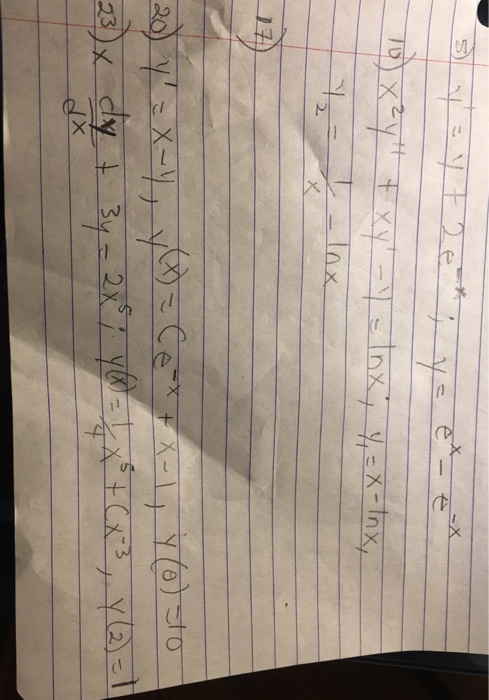 5) y' = y + 2e^-x ; y = e^x - e^-x
10) x^2y" + xy' - y = lnx ; y₁ = x - lnx,
y₂ = 1/x - lnx
17)
20) y' = x - y, y(x) = Ce^-x + x - 1, y(0) = 10
23) x dy/dx + 3y = 2x^5 ; y(x) = 1/4 x^5 + Cx^-3, y(2) = 1